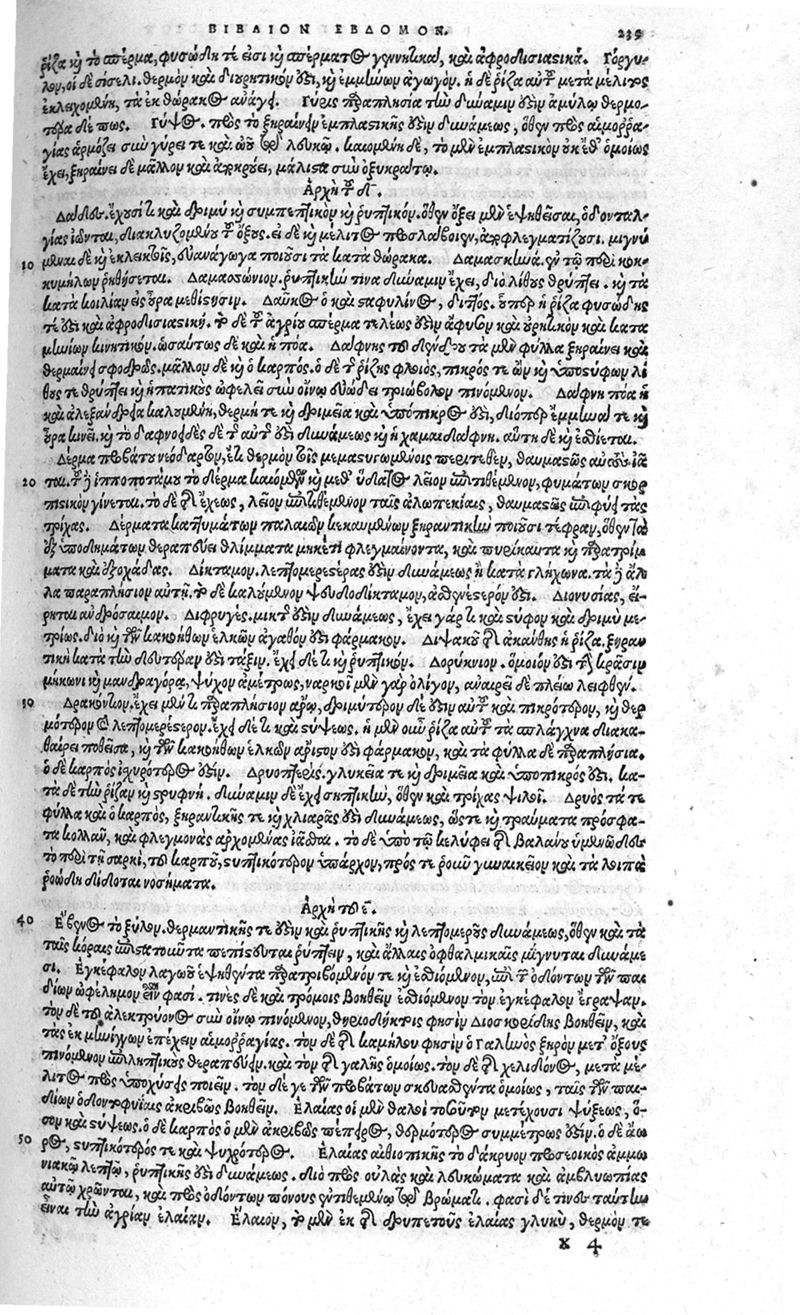 ΒΙΒΛΙΟΝ ΕΒΔΟΜΟΝ. 239
ῥίζα καὶ τὸ σπέρμα, φυσώδη τέ εἰσι καὶ σπέρματος γεννητικὰ, καὶ ἀφροδισιασικά. Γόργυ-
λον, οἱ δὲ σίσελι. θερμὸν καὶ διουρητικόν ἐστι, καὶ ἐμμήνων ἀγωγόν. ἡ δὲ ῥίζα αὐτοῦ μετὰ μέλιτος
ἐκλειχομένη, τὰ ἐκ θώρακος ἀνάγει. Γύρις παραπλησία τὴν δύναμιν ἐστὶν ἀμύλῳ θερμο-
τέρα δέ πως. Γύψος. πρὸς τὸ ξηραίνειν ἐμπλαστικῆς ἐστὶν δυνάμεως, ὅθεν πρὸς αἱμοῤῥα-
γίας ἁρμόζει σὺν γύρει τε καὶ ὠοῦ τῷ λευκῷ. καιομένη δὲ, τὸ μὲν ἐμπλαστικὸν οὐκ ἔθ' ὁμοίως
ἔχει, ξηραίνει δὲ μᾶλλον καὶ ἀποκρούει, μάλιστα σὺν ὀξυκράτῳ.
Ἀρχὴ τοῦ δ.
Δαΐδες. ἔχουσί τι καὶ δριμὺ καὶ συμπεπτικὸν καὶ ῥυπτικόν. ὅθεν ὄξει μὲν ἑψηθεῖσαι, ὀδονταλ-
γίας ἰῶνται, διακλυζομένου τοῦ ὄξους. εἰ δὲ καὶ μέλιτος προσλάβοιεν, ἀποφλεγματίζουσι. μιγνύ
10 μεναι δὲ καὶ ἐκλεικτοῖς, εὐανάγωγα ποιοῦσι τὰ κατὰ θώρακα. Δαμασκηνά. ἐν τῷ περὶ κοκ-
κυμήλων ῥηθήσεται. Δαμασώνιον. ῥυπτικήν τινα δύναμιν ἔχει, διὸ λίθους θρύπτει. καὶ τὰ
κατὰ κοιλίαν εἰς οὖρα μεθίστησιν. Δαῦκος ὁ καὶ σταφυλῖνος, διττός.
τέ ἐστι καὶ ἀφροδισιαστική. τὸ δὲ τοῦ ἀγρίου σπέρμα τελέως ἐστὶν ἄφυσον καὶ οὐρητικὸν καὶ κατα
μηνίων κινητικόν. ὡσαύτως δὲ καὶ ἡ πόα. Δάφνης τοῦ δένδρου τὰ μὲν φύλλα ξηραίνει καὶ
θερμαίνει σφοδρῶς. μᾶλλον δὲ καὶ ὁ καρπός. ὁ δὲ τῆς ῥίζης φλοιὸς, πικρός τε ὢν καὶ ὑποστύφων λί
θους τε θρύπτει καὶ ἡπατικοὺς ὠφελεῖ σὺν οἴνῳ εὐώδει τριώβολον πινόμενον. Δάφνη πόα ἡ
καὶ ἀλεξάνδρεια καλουμένη, θερμή τε καὶ δριμεῖα καὶ ὑπόπικρός ἐστι, διόπερ ἔμμηνά τε καὶ
οὖρα κινεῖ. καὶ τὸ δαφνοειδὲς δὲ τῆς αὐτῆς ἐστι δυνάμεως καὶ ἡ χαμαιδάφνη. αὕτη δὲ καὶ ἐσθίεται.
Δέρμα προβάτου νεόδαρτον, ἔτι θερμὸν τοῖς μεμαστιγωμένοις περιτεθὲν, θαυμαστῶς αὐτοὺς ἰᾶ
20 ται. τοῦ δὲ ἱπποποτάμου τὸ δέρμα καιόμενον καὶ μεθ' ὕδατος λεῖον ἐπιτιθέμενον, φυμάτων σκορ
πιστικὸν γίνεται. τὸ δὲ τοῦ ἔχεως, λεῖον ἐπιτιθέμενον ταῖς ἀλωπεκίαις, θαυμαστῶς ἐπιφύει τὰς
τρίχας. Δέρματα καττυμάτων παλαιῶν κεκαυμένων ξηραντικὴν ποιοῦσι τέφραν, ὅθεν τὰ
ἐξ ὑποδημάτων θεραπεύει θλίμματα μηκέτι φλεγμαίνοντα, καὶ πυρίκαυτα καὶ παρατρίμ
ματα καὶ ἐξοχάδας. Δίκταμον. λεπτομερεστέρας ἐστὶν δυνάμεως ἢ κατὰ γλήχωνα. τὰ δὲ ἄλ
λα παραπλήσιον αὐτῇ. τὸ δὲ καλούμενον ψευδοδίκταμον, ἀσθενέστερόν ἐστι. Διονυσίας, εἴ-
ρηται ἀνδρόσαιμον. Διφρυγές. μικτῆς ἐστὶν δυνάμεως, ἔχει γάρ τι καὶ στύφον καὶ δριμὺ με-
τρίως. διὸ καὶ τῶν κακοήθων ἑλκῶν ἀγαθόν ἐστι φάρμακον. Διψάκου τῆς ἀκάνθης ἡ ῥίζα, ξηραν
τικὴ κατὰ τὴν δευτέραν ἐστὶ τάξιν. ἔχει δέ τι καὶ ῥυπτικόν. Δορύκνιον. ὅμοιόν ἐστι τῇ κράσει
μήκωνι καὶ μανδραγόρᾳ, ψῦχον ἀμέτρως, ναρκοῖ μὲν γὰρ ὀλίγον, ἀναιρεῖ δὲ πλέω ληφθέν.
30 Δρακόντιον. ἔχει μέν τι παραπλήσιον ἄρῳ, δριμύτερον δέ ἐστιν αὐτοῦ καὶ πικρότερον, καὶ θερ
μότερον καὶ λεπτομερέστερον. ἔχει δέ τι καὶ στύψεως. ἡ μὲν οὖν ῥίζα αὐτοῦ τὰ σπλάγχνα διακα-
θαίρει ποθεῖσα, καὶ τῶν κακοήθων ἑλκῶν ἄριστόν ἐστι φάρμακον, καὶ τὰ φύλλα δὲ παραπλήσια.
ὁ δὲ καρπὸς ἰσχυρότερός ἐστιν. Δρυοπτερίς. γλυκεῖα τε καὶ δριμεῖα καὶ ὑπόπικρός ἐστι. κα-
τὰ δὲ τὴν ῥίζαν καὶ στρυφνή. δύναμιν δὲ ἔχει σηπτικὴν, ὅθεν καὶ τρίχας ψιλοῖ. Δρυὸς τά τε
φύλλα καὶ ὁ καρπὸς, ξηραντικῆς τε καὶ χλιαρᾶς ἐστὶ δυνάμεως, ὥστε καὶ τραύματα πρόσφα-
τα κολλᾶν, καὶ φλεγμονὰς ἀρχομένας ἰᾶσθαι. τὸ δὲ ὑπὸ τῷ κελύφει τῆς βαλάνου ὑμενῶδες
τὸ περὶ τῇ σαρκὶ, τοῦ καρποῦ, στυπτικώτερον ὑπάρχον, πρός τε ῥοῦν γυναικεῖον καὶ τὰ λοιπὰ
ῥοώδη δίδοται νοσήματα.
Ἀρχὴ τοῦ ε.
40 Ἔβενος τὸ ξύλον. θερμαντικῆς τε ἐστὶν καὶ ῥυπτικῆς καὶ λεπτομεροῦς δυνάμεως, ὅθεν καὶ τὰ
ταῖς κόραις ἐπιπροσθοῦντα πεπίστευται ῥύπτειν, καὶ ἄλλαις ὀφθαλμικαῖς μίγνυται δυνάμε
σι. Ἐγκέφαλον λαγωοῦ ἑψηθέντα παρατριβόμενόν τε καὶ ἐσθιόμενον, ἐπὶ τῶν ὀδόντων τῶν παι
δίων ὠφέλιμον εἶναι φασί. τινὲς δὲ καὶ τρόμοις βοηθεῖν ἐσθιόμενον τὸν ἐγκέφαλον ἔγραψαν.
τὸν δὲ τοῦ ἀλεκτρυόνος σὺν οἴνῳ πινόμενον, θηριοδήκτοις φησὶν Διοσκορίδης βοηθεῖν, καὶ
τὰς ἐκ μηνίγγων ἐπέχειν αἱμοῤῥαγίας. τὸν δὲ τῆς καμήλου φησὶν ὁ Γαληνὸς ξηρὸν μετ' ὄξους
πινόμενον ἐπιληπτικοὺς θεραπεύειν. καὶ τὸν τῆς γαλῆς ὁμοίως. τὸν δὲ τῆς χελιδόνος, μετὰ μέ-
λιτος πρὸς ὑποχύσεις ποιεῖν. τὸν δέ γε τῶν προβάτων σκευασθέντα ὁμοίως, ταῖς τῶν παι-
δίων ὀδοντοφυΐαις ἀκριβῶς βοηθεῖν. Ἐλαίας οἱ μὲν θαλοὶ τοσοῦτον μετέχουσι ψύξεως, ὅ-
σον καὶ στύψεως. ὁ δὲ καρπὸς ὁ μὲν ἀκριβῶς πέπειρος, θερμότερος συμμέτρως ἐστίν. ὁ δὲ ἄω
50 ρος, στυπτικώτερός τε καὶ ψυχρότερος. Ἐλαίας αἰθιοπικῆς τὸ δάκρυον προσεοικὸς ἀμμω
νιακῷ λεπτῷ, ῥυπτικῆς ἐστι δυνάμεως. διὸ πρὸς οὐλὰς καὶ λευκώματα καὶ ἀμβλυωπίας
αὐτῷ χρῶνται, καὶ πρὸς ὀδόντων πόνους ἐντιθεμένῳ τῷ βρώματι. φασὶ δέ τινες ταύτην
εἶναι τὴν ἀγρίαν ἐλαίαν. Ἔλαιον, τὸ μὲν ἐκ τῆς δρυπετοῦς ἐλαίας γλυκὺ, θερμόν τε
x 4